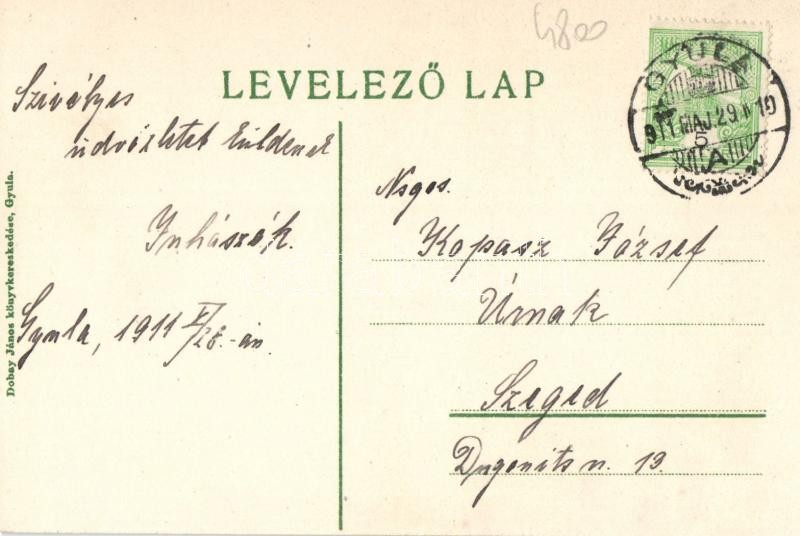 4800
LEVELEZŐ LAP
GYULA
911 MÁJ 29
5
A
Szivélyes
üdvözletet küldenek
Juhászék.
Gyula, 1911 V/28.-án
Nsgos.
Kopasz József
Úrnak
Szeged
Dugonits u. 19.
Dobay János könyvkereskedése, Gyula.